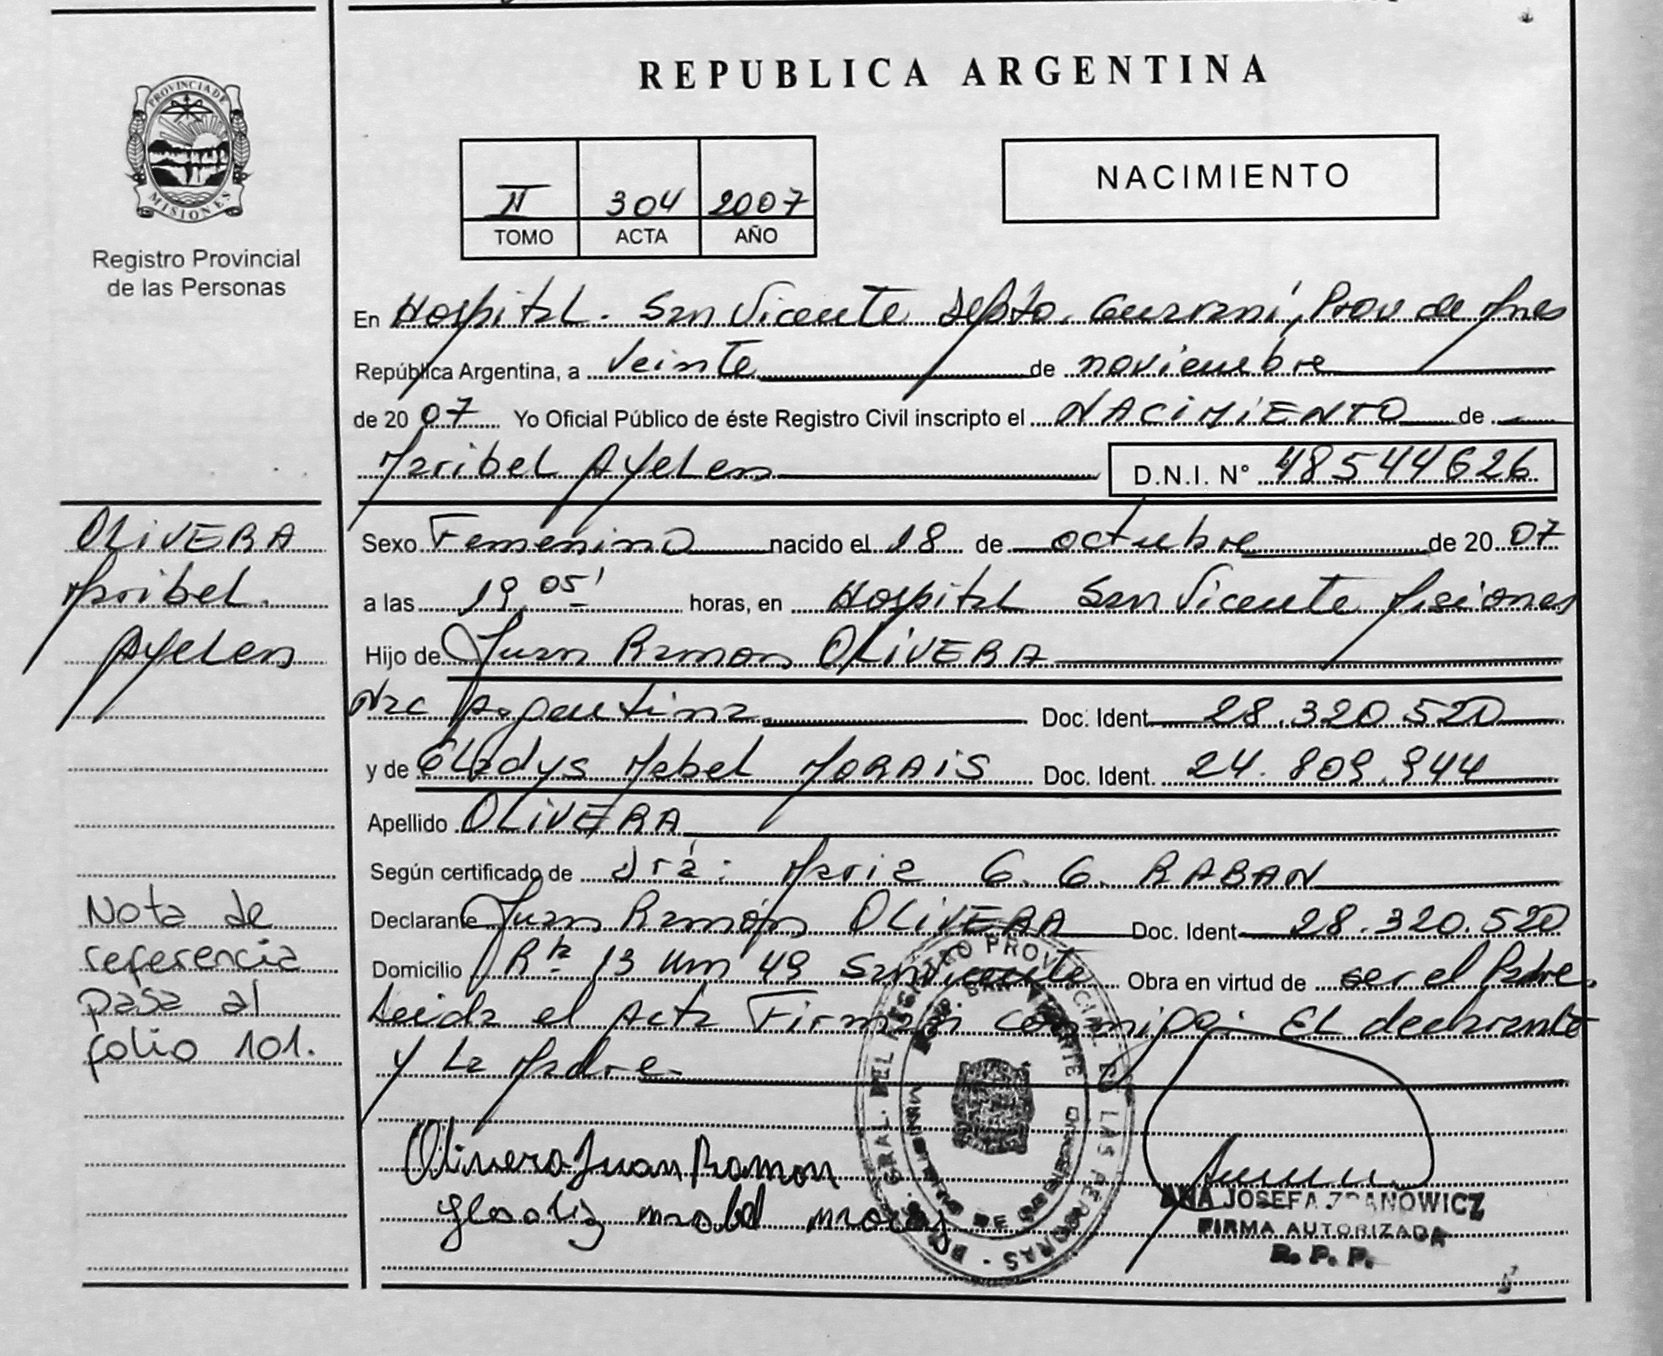 REPUBLICA ARGENTINA
PROVINCIA DE
MISIONES
Registro Provincial
de las Personas
II 304 2007
TOMO ACTA AÑO
NACIMIENTO
En Hospital. San Vicente Depto. Guaraní, Prov de Mnes
República Argentina, a veinte de noviembre
de 2007 Yo Oficial Público de éste Registro Civil inscripto el NACIMIENTO de
Maribel Ayelen D.N.I. N° 48544626
OLIVERA
Maribel.
Ayelen
Sexo Femenino nacido el 18 de octubre de 2007
a las 19,05' horas, en Hospital San Vicente Misiones
Hijo de Juan Ramon OLIVERA
Nac Argentina. Doc. Ident. 28.320.520
y de Gladys Mabel MORAIS Doc. Ident. 24.809.944
Apellido OLIVERA
Según certificado de dra: Maria G. G. RABAN
Declarante Juan Ramón OLIVERA Doc. Ident. 28.320.520
Domicilio 13 Km 49 San Vicente Obra en virtud de ser el Padre.
Leida el Acta Firman conmigo: EL declarante
y La Madre.
Nota de
referencia
pasa al
folio 101.
Olivera Juan Ramon
ANA JOSEFA
FIRMA AUTORIZADA
R. P. P.